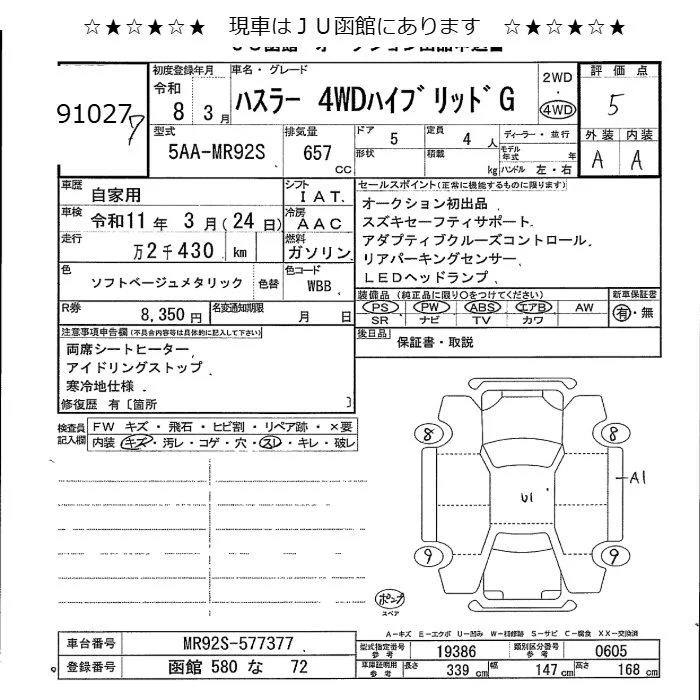 ☆★☆★☆★ 現車はＪＵ函館にあります ☆★☆★☆★
91027
7
初度登録年月
令和
8 3月
車名・グレード
ハスラー 4WDハイブリッドG
2WD
・
4WD
評価点
5
外装 内装
A A
型式
5AA-MR92S
排気量
657
CC
ドア
5
定員
4 人
形状
積載
kg
ディーラー・並行
モデル年式 年
ハンドル 左・右
車歴 自家用
シフト IAT.
車検 令和11年 3月(24日)
冷房 AAC
走行 万2千430 km
燃料 ガソリン
色 ソフトベージュメタリック 色替
色コード WBB
R券 8,350円
名変通知期限 月 日
セールスポイント(正常に機能するものに限ります)
オークション初出品 .
スズキセーフティサポート .
アダプティブクルーズコントロール .
リアパーキングセンサー .
LEDヘッドランプ .
装備品(純正品に限り○をつけてください)
PS PW ABS エアB AW
SR ナビ TV カワ
新車保証書
有・無
後日品 保証書・取説
注意事項申告欄(不具合内容等は具体的に記入して下さい)
両席シートヒーター .
アイドリングストップ .
寒冷地仕様 .
修復歴 有〔箇所 〕
検査員記入欄
FW キズ・飛石・ヒビ割・リペア跡・×要
内装 キズ・汚レ・コゲ・穴・スレ・キレ・破レ
8
8
A1
U1
9
9
ポンプ
スペア
A-キズ E-エクボ U-凹み W-補修跡 S-サビ C-腐食 XX-交換済
車台番号 MR92S-577377 .
登録番号 函館 580 な 72
型式指定番号 参考 19386
類別区分番号 参考 0605
車庫証明用 参考 長さ 339 cm 幅 147 cm 高さ 168 cm